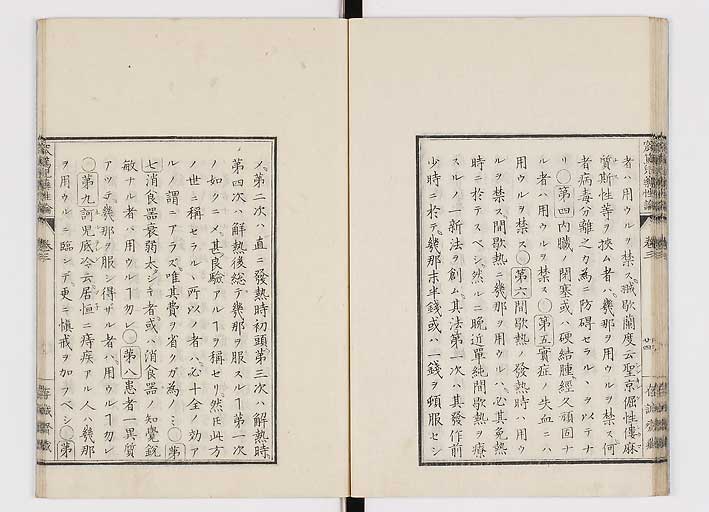 者ハ用ウルヲ禁ス掝歇蘭度云聖京倔性僂麻
質斯性等ヲ挾ム者ハ幾那ヲ用ウルヲ禁ス何
者病毒分離之カ為ニ防碍セラルヽヲ以テナ
リ○第四内臓ノ閉塞或ハ硬結腫經久頑固ナ
ル者ハ用ウルヲ禁ス○第五實症 失血ニハ
用ウルヲ禁ス○第六間歇熱ノ發熱時ハ用ウ
ルヲ禁ス間歇熱ニ幾那ヲ用ウルハ必其免熱
時ニ於テスベシ然ルニ晩近單純間歇熱ヲ療
スルノ一新法ヲ創ム其法第一次ハ其發作前
少時ニ於テ幾那末半錢或ハ一錢ヲ頓服セシ
メ第二次ハ直ニ發熱時初頭第三次ハ解熱時
第四次ハ解熱後総テ幾那ヲ服スルヿ第一次
ノ如クニメ甚良驗アルヿヲ稱セリ然𪜈此方
ノ世ニ稱セラルヽ所以ノ者ハ必十全ノ効ア
ルノ謂ニアラズ唯其費ヲ省クガ為ノミ○第
七消食器衰弱太シキ者或ハ消食器 知覺銳
敏ナル者ハ用ウルヿカレ○第八患者一異質
アツテ幾那ヲ服シ得ザル者ハ用ウルヿカレ
○第九訶児底冷云居恒ニ痔疾アル人ハ幾那
ヲ用ウルニ臨ンデ更ニ愼戒ヲ加フベシ○第
卷三
卷三
廿四